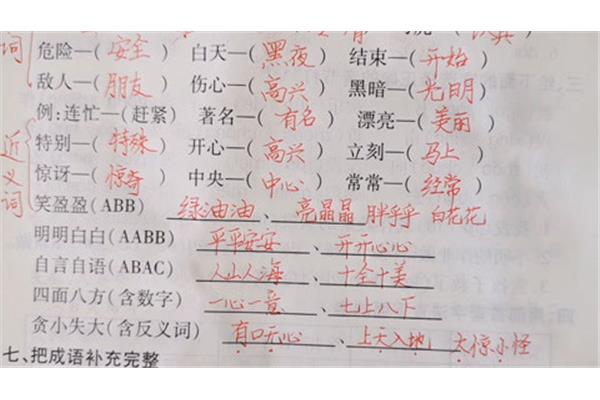 危险—(安全) 白天—(黑夜) 结束—(开始)
反义词
敌人—(朋友) 伤心—(高兴) 黑暗—(光明)
例:连忙—(赶紧) 著名—(有名) 漂亮—(美丽)
近义词
特别—(特殊) 开心—(高兴) 立刻—(马上)
惊讶—(惊奇) 中央—(中心) 常常—(经常)
笑盈盈(ABB) 绿油油、亮晶晶 胖乎乎 白花花
明明白白(AABB) 平平安安、开开心心
自言自语(ABAC) 人山人海、十全十美
四面八方(含数字) 一心一意、七上八下
贪小失大(含反义词) 有口无心、上天入地 大惊小怪
七、把成语补充完整